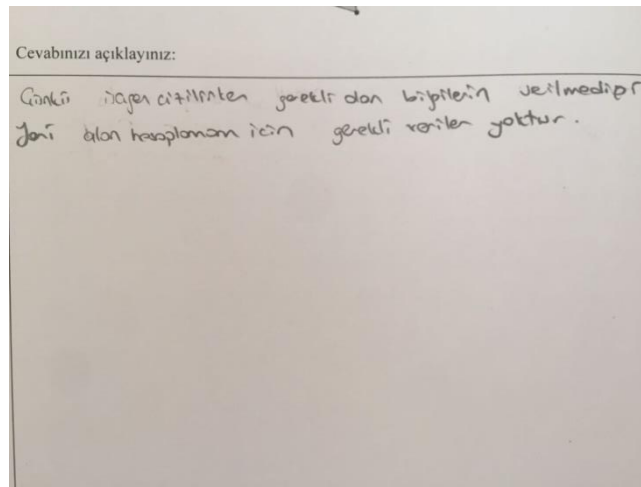 Cevabınızı açıklayınız:
Çünkü gerekli olan bilgilerin verilmediği
Yani alan hesaplamam için gerekli veriler yoktur.